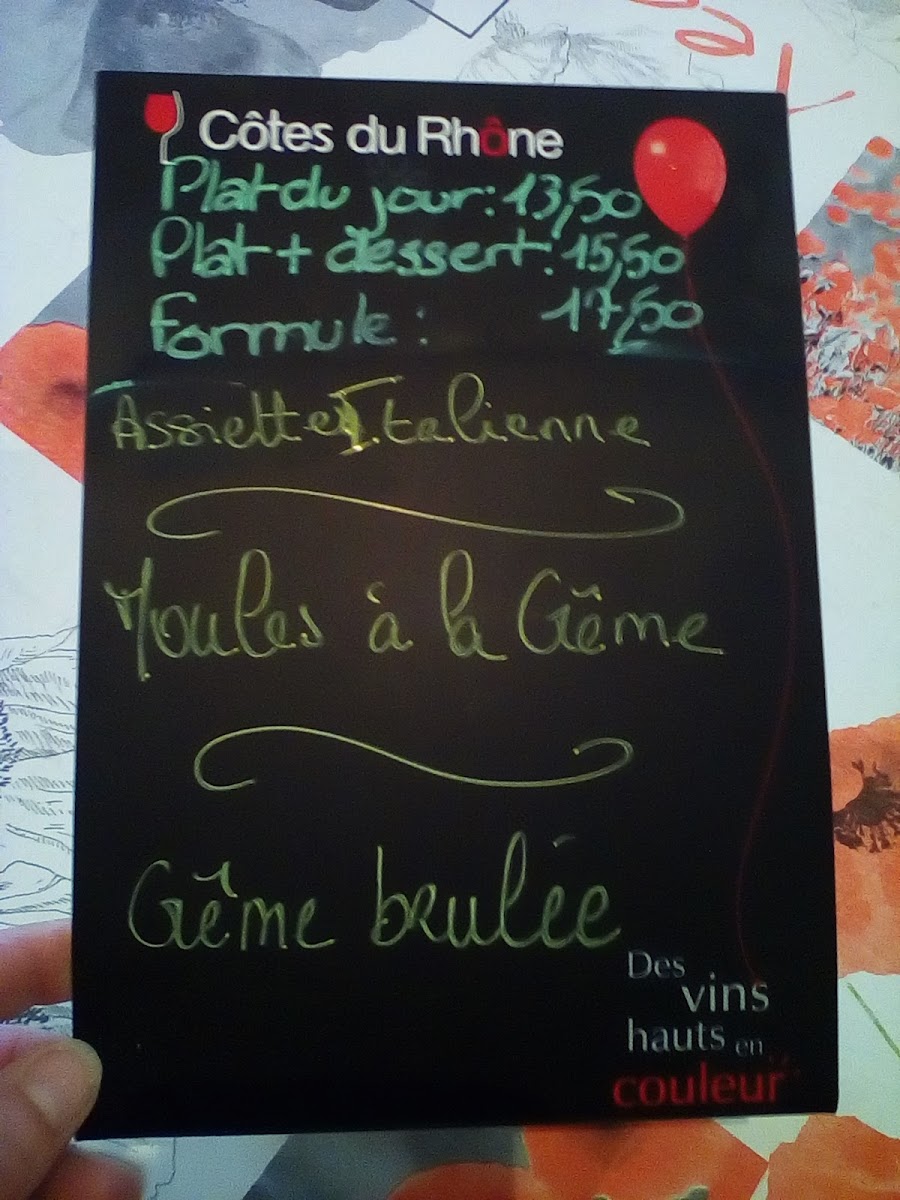 Côtes du Rhône
Plat du jour: 13,50
Plat + dessert: 15,50
Formule: 17,50
Assiette Italienne
Moules à la Crême
Crême brulée
Des
vins
hauts en
couleur